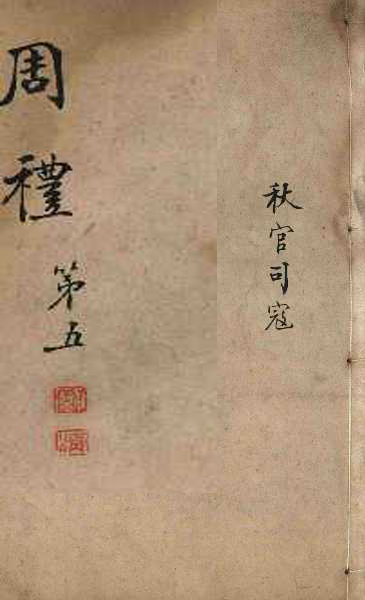 秋官司寇
周禮
第五